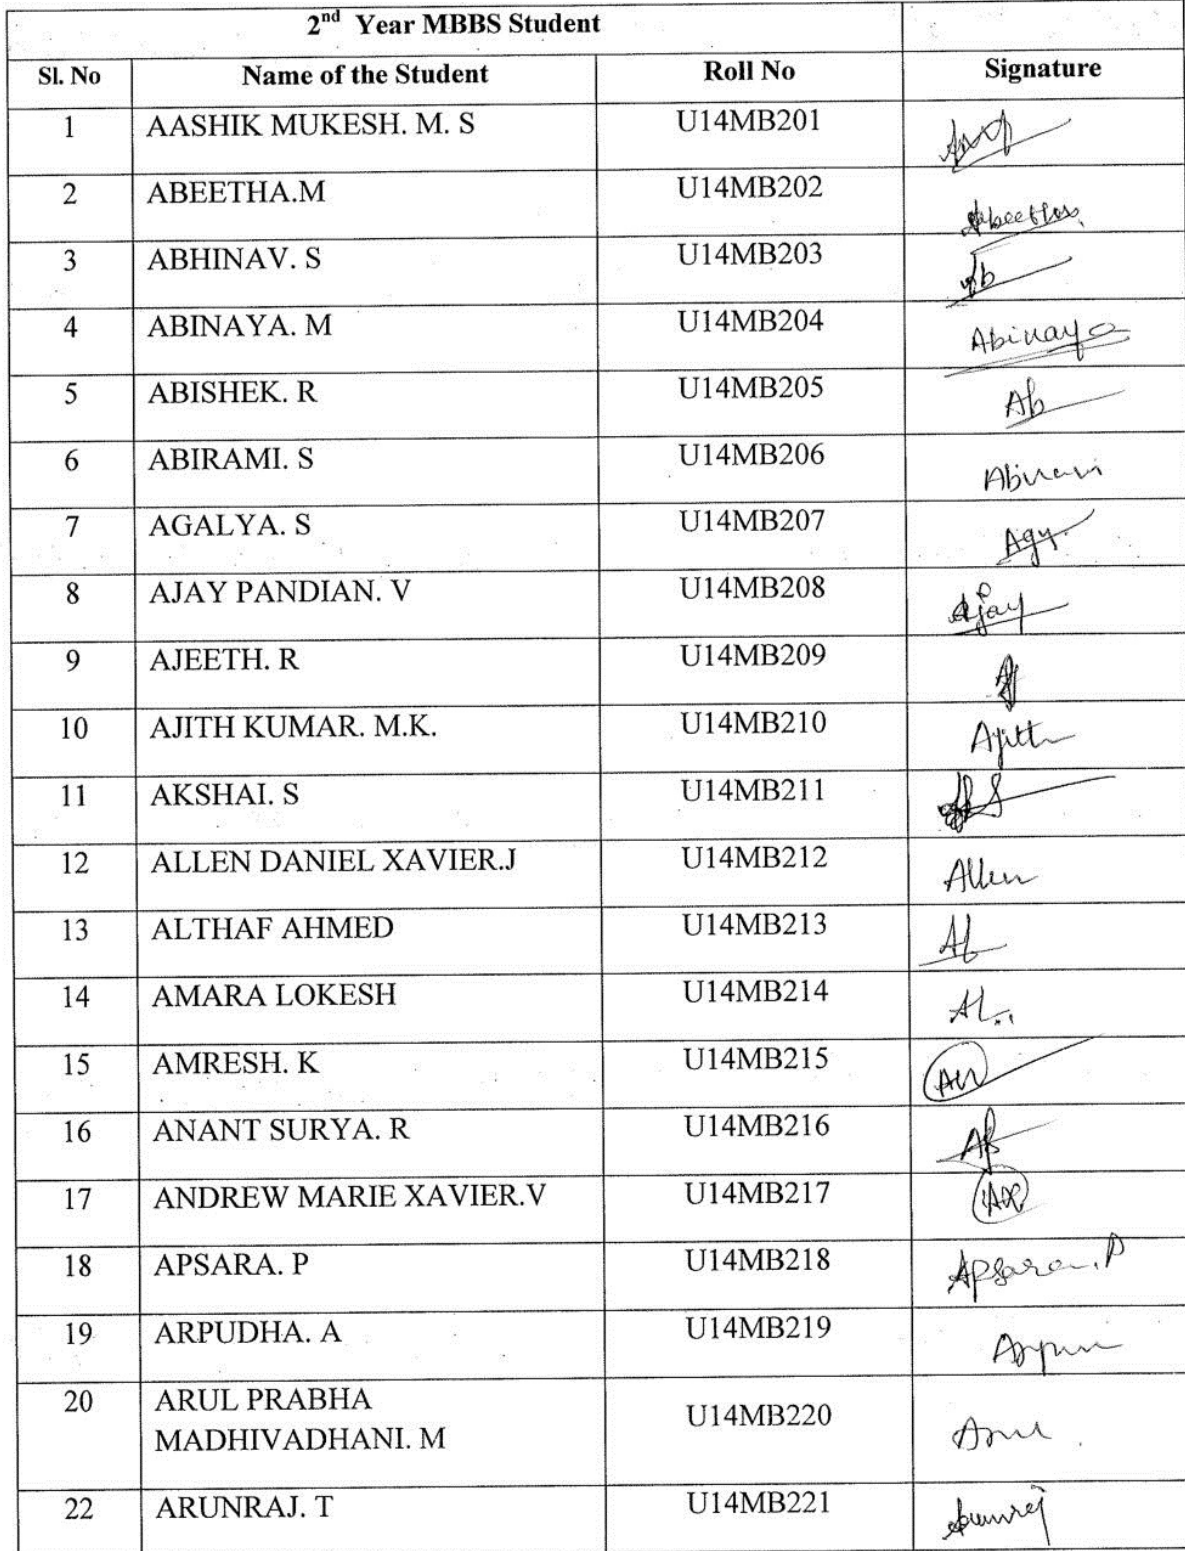 2nd Year MBBS Student
Sl. No Name of the Student Roll No Signature
1 AASHIK MUKESH. M. S U14MB201
2 ABEETHA.M U14MB202 Abeetha
3 ABHINAV. S U14MB203 Ab
4 ABINAYA. M U14MB204 Abinaya
5 ABISHEK. R U14MB205 Ab
6 ABIRAMI. S U14MB206 Abirami
7 AGALYA. S U14MB207 Agy
8 AJAY PANDIAN. V U14MB208 Ajay
9 AJEETH. R U14MB209
10 AJITH KUMAR. M.K. U14MB210 Ajith
11 AKSHAI. S U14MB211
12 ALLEN DANIEL XAVIER.J U14MB212 Allen
13 ALTHAF AHMED U14MB213
14 AMARA LOKESH U14MB214 AL
15 AMRESH. K U14MB215
16 ANANT SURYA. R U14MB216
17 ANDREW MARIE XAVIER.V U14MB217 AX
18 APSARA. P U14MB218 Apsara. P
19 ARPUDHA. A U14MB219
20 ARUL PRABHA
MADHIVADHANI. M U14MB220 Arul
22 ARUNRAJ. T U14MB221 Arunraj